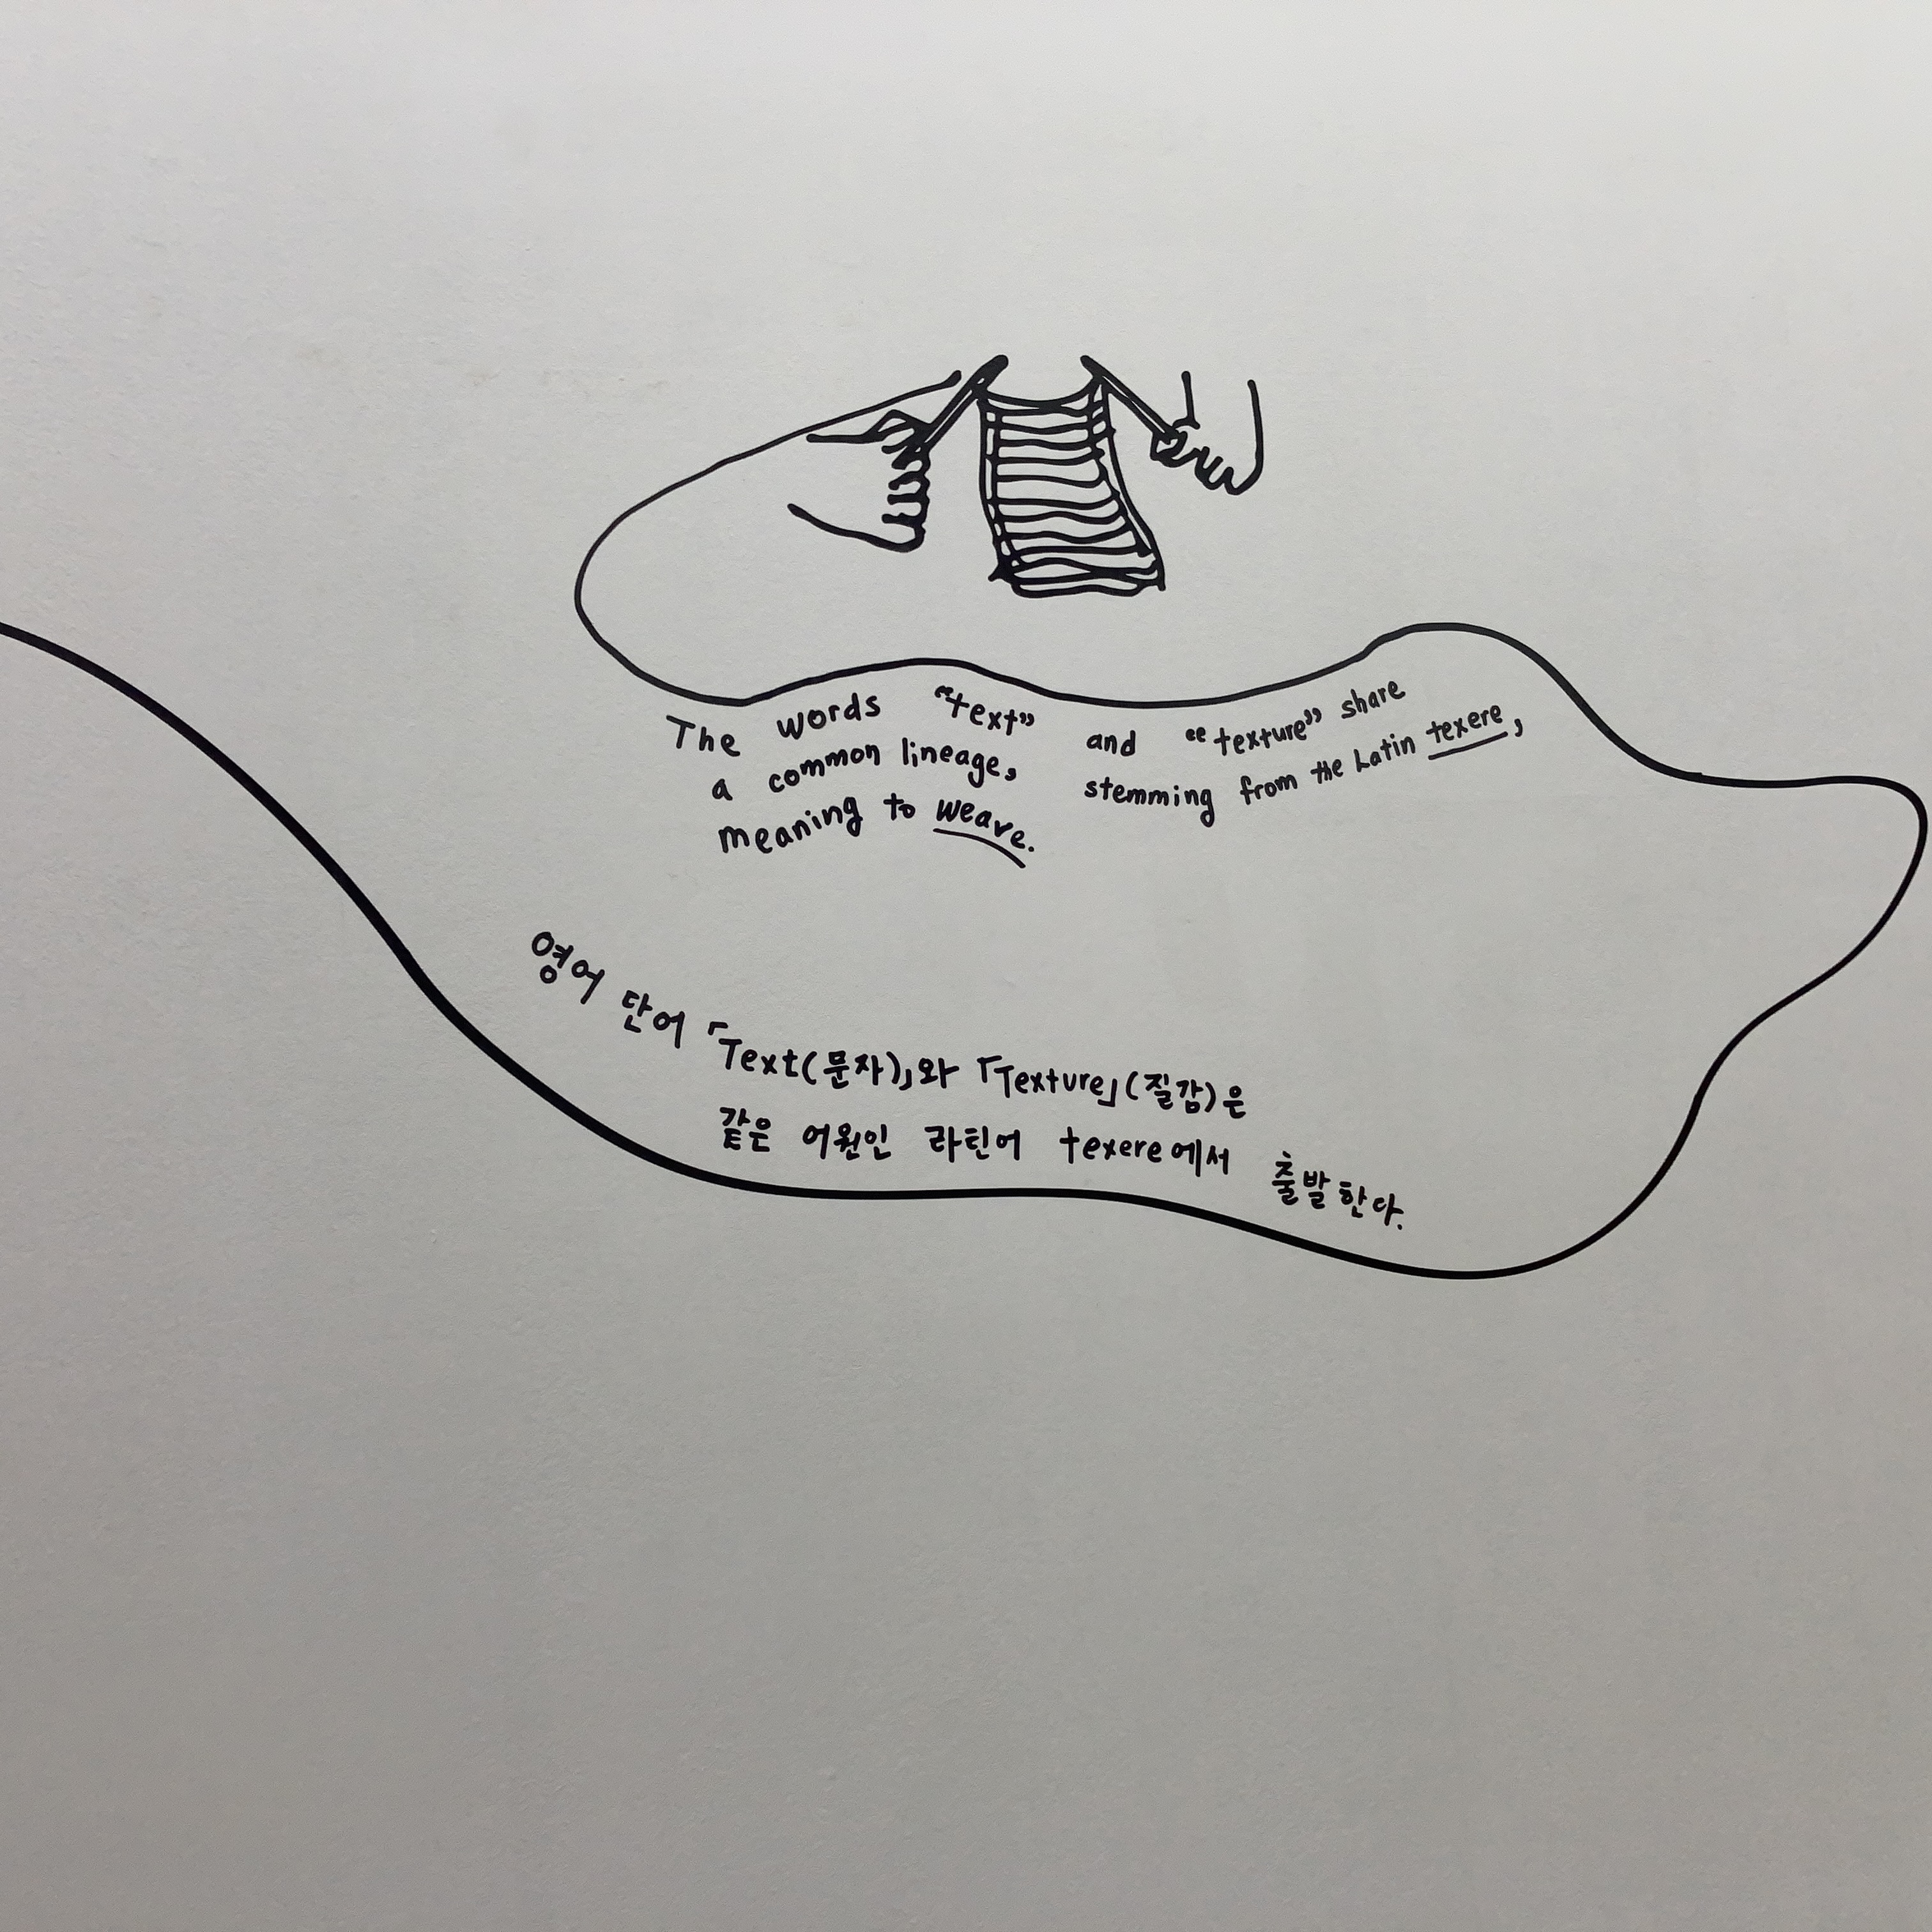 The words “text” and “texture” share
a common lineage, stemming from the Latin texere,
meaning to weave.
영어 단어 「Text(문자)」와 「Texture」(질감)은
같은 어원인 라틴어 texere에서 출발한다.